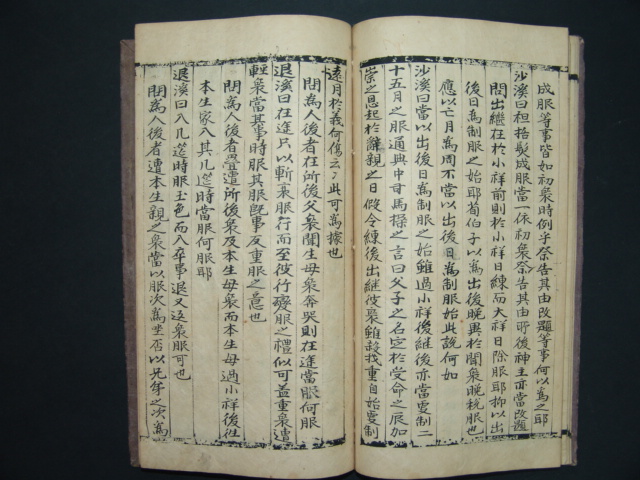 成服等事皆如初喪時例乎祭告其由改題等事何以為之耶
沙溪曰袒括髮成服當一依初喪祭告其由所後神主亦當改題
問出繼在於小祥前則於小祥日練而大祥日除服耶抑以出
後日為制服之始耶荀伯子以為出後晚異於聞喪晚稅服也
應以亡月為周不當以出後日為制服始此說何如
沙溪曰當以出後日為制服之始雖過小祥後繼後亦當更制二
十五月之服通典中司馬操之言曰父子之名定於受命之辰加
崇之恩起於辭親之日假令練後出繼彼喪雖殺我重自始更制
遠月於義何傷云云此可為據也
問為人後者在所後父喪聞生母喪奔哭則在途當服何服
退溪曰在途只以斬衰服行而至彼行變服之禮似可蓋重喪遭
輕喪當其事時服其服既事反重服之意也
問為人後者疊遭所後喪及本生母喪而本生母過小祥後往
本生家入其几筵時當服何服耶
退溪曰入几筵時服玉色而入卒事退又返喪服可也
問為人後者遭本生親之喪當以服次為坐否以兄弟之次為